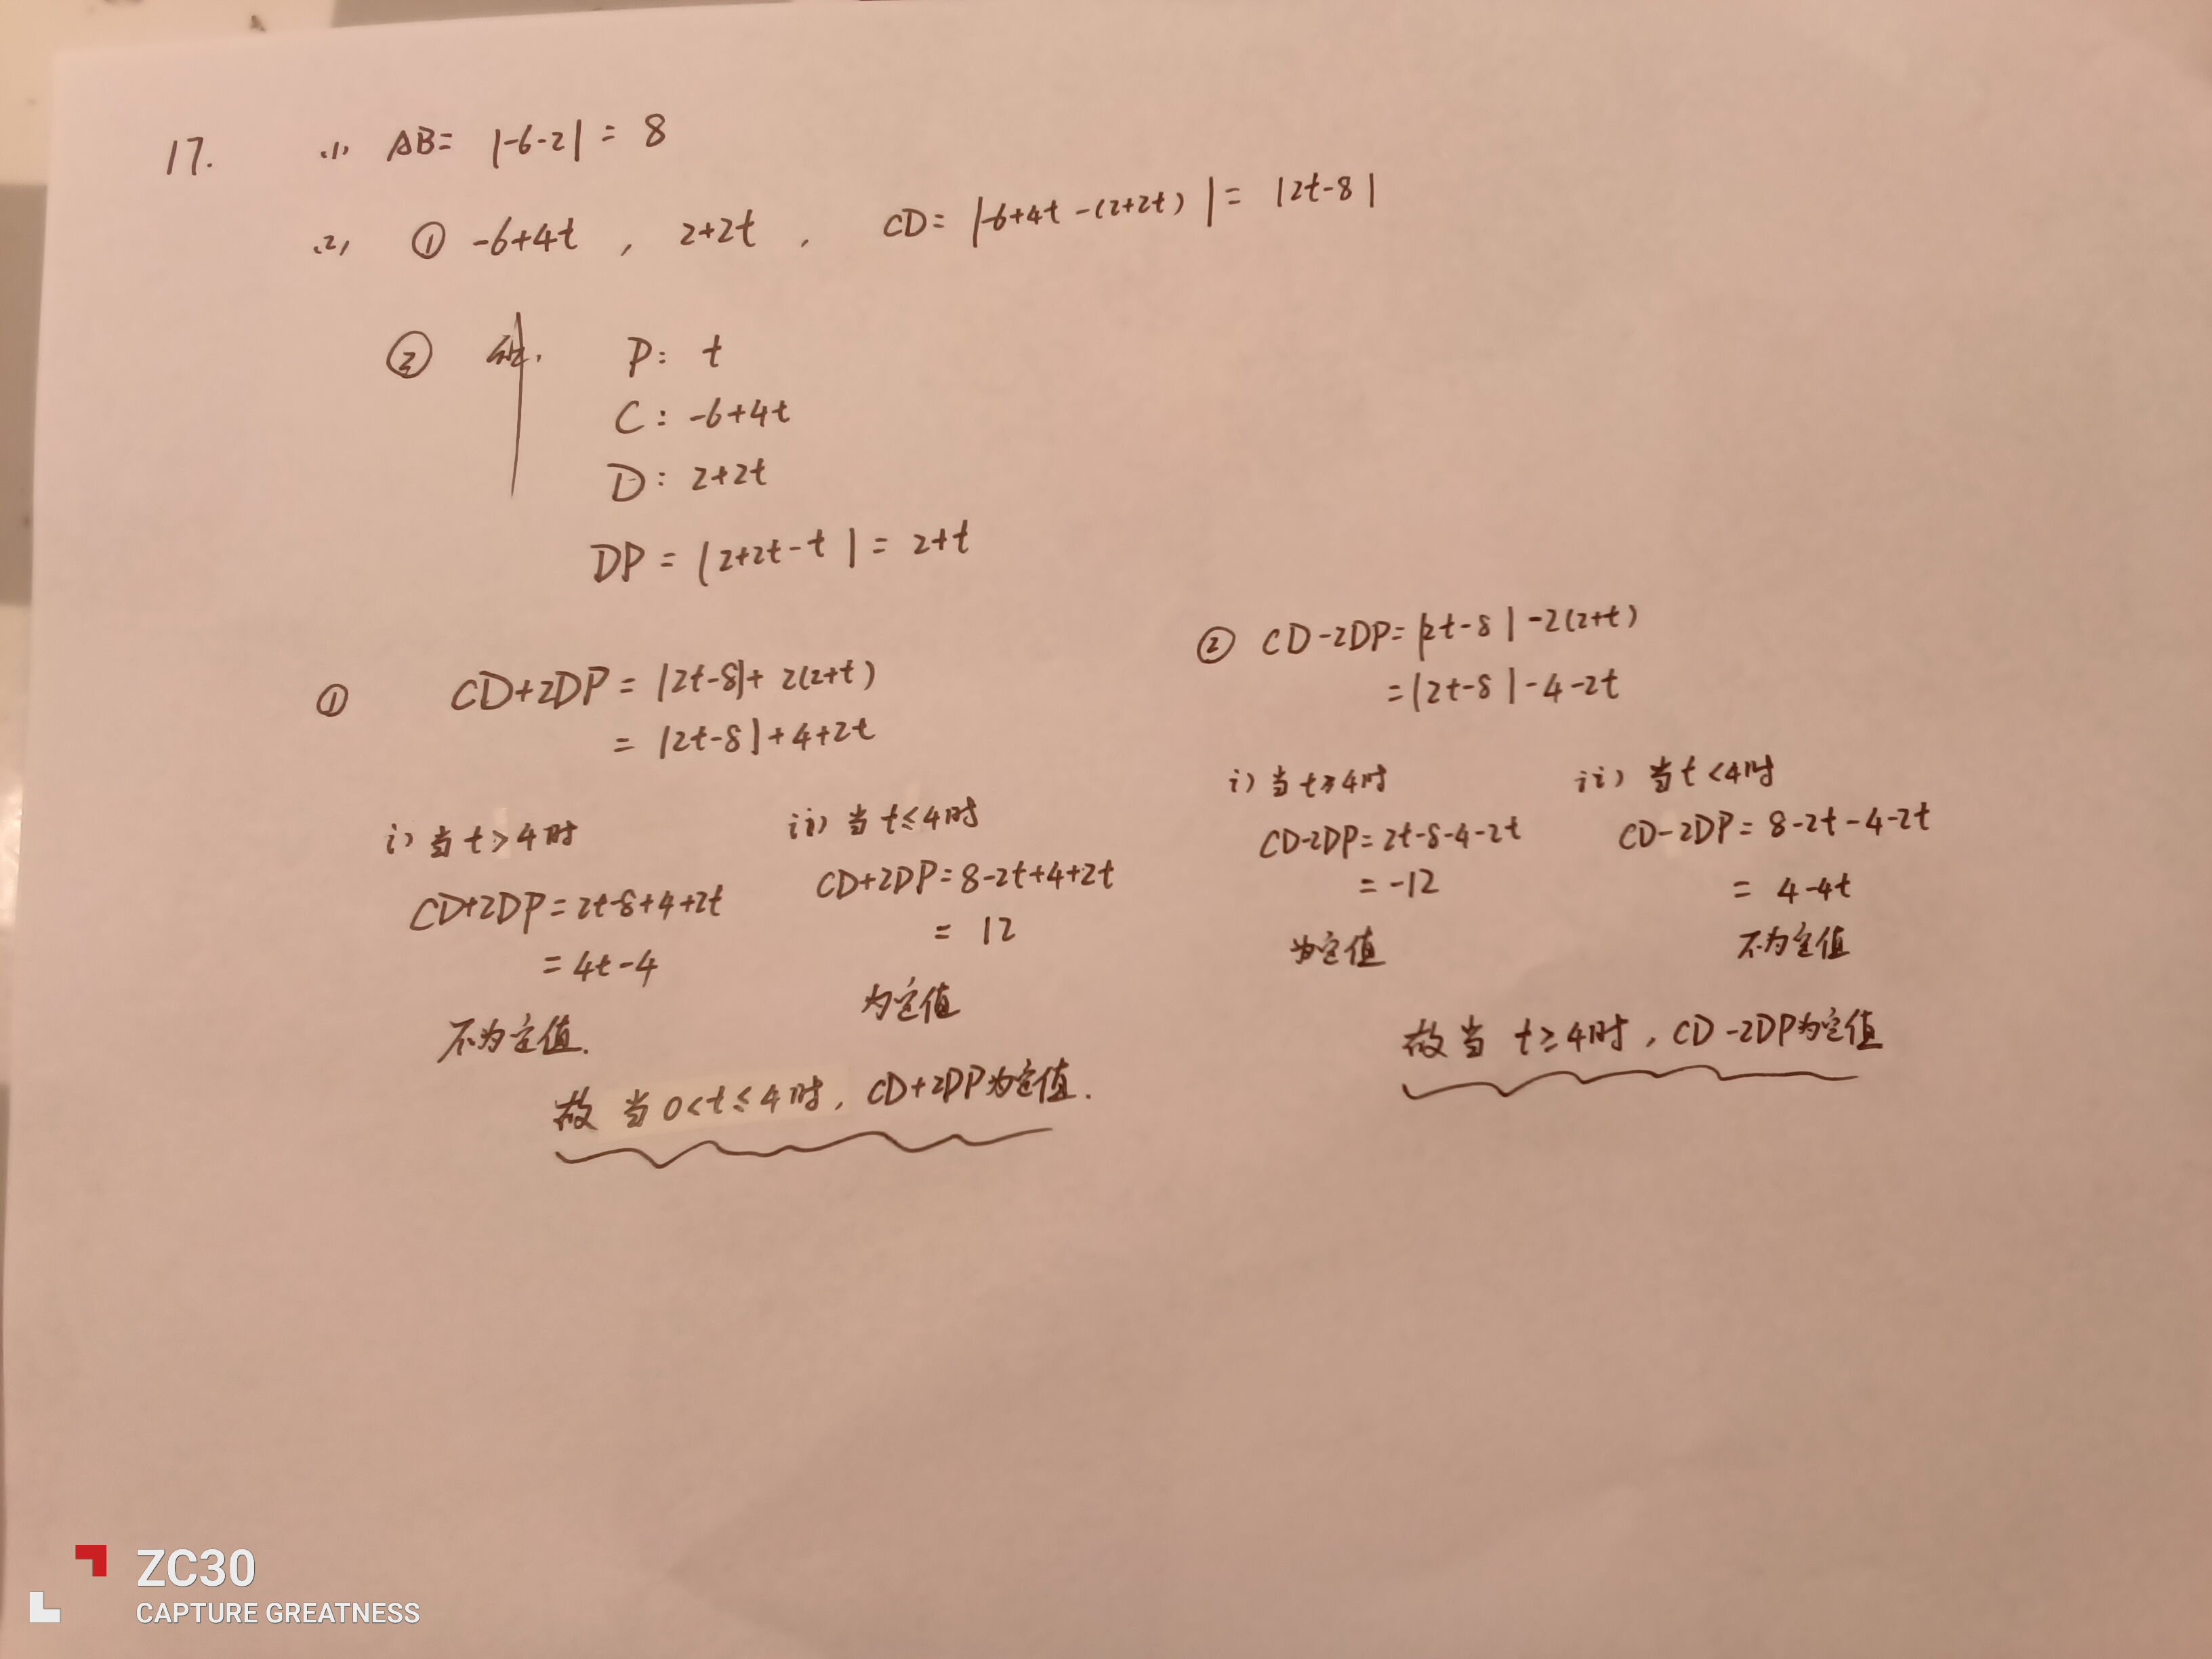 17. (1) AB= |-6-2| = 8
(2) ① -6+4t , 2+2t , CD= |-6+4t-(2+2t)| = |2t-8|
② P: t
C: -6+4t
D: 2+2t
DP = |2+2t-t| = 2+t
① CD+2DP = |2t-8|+ 2(2+t)
= |2t-8|+4+2t
i) 当t>4时
CD+2DP=2t-8+4+2t
= 4t-4
不为定值.
ii) 当t≤4时
CD+2DP=8-2t+4+2t
= 12
为定值
故 当0<t≤4时, CD+2DP为定值.
② CD-2DP=|2t-8|-2(2+t)
=|2t-8|-4-2t
i) 当t≥4时
CD-2DP=2t-8-4-2t
= -12
为定值
ii) 当t<4时
CD-2DP= 8-2t-4-2t
= 4-4t
不为定值
故当 t≥4时, CD-2DP为定值
ZC30
CAPTURE GREATNESS